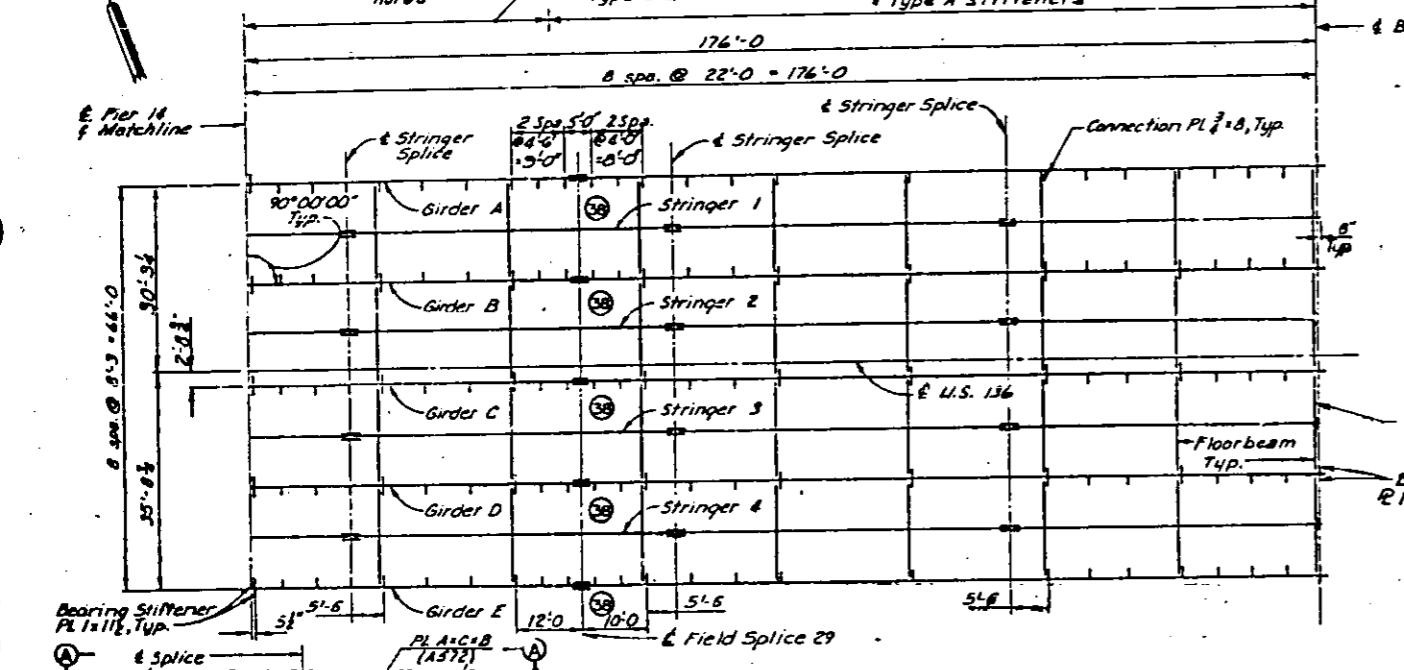 Type A Stiffeners
176'-0
8 spa. @ 22'-0 = 176'-0
℄ Pier 14
& Matchline
℄ Stringer
Splice
2 Spa.
@ 4'-6"
= 9'-0"
5'-0"
2 Spa.
@ 4'-0"
= 8'-0"
℄ Stringer Splice
℄ Stringer Splice
Connection PL ¾ x 8, Typ.
90°00'00"
Typ.
Girder A
38
Stringer 1
8"
Typ
Girder B
38
Stringer 2
8 spa. @ 8'-3 = 66'-0
2'-8
℄ U.S. 136
Girder C
38
Stringer 3
Floorbeam
Typ.
Girder D
38
Stringer 4
Bearing Stiffener
PL 1 x 11½, Typ.
5'-6
Girder E
12'-0
38
10'-0
5'-6
5'-6
℄ Field Splice 29
A
℄ Splice
PL A x C x B
(A572)
A